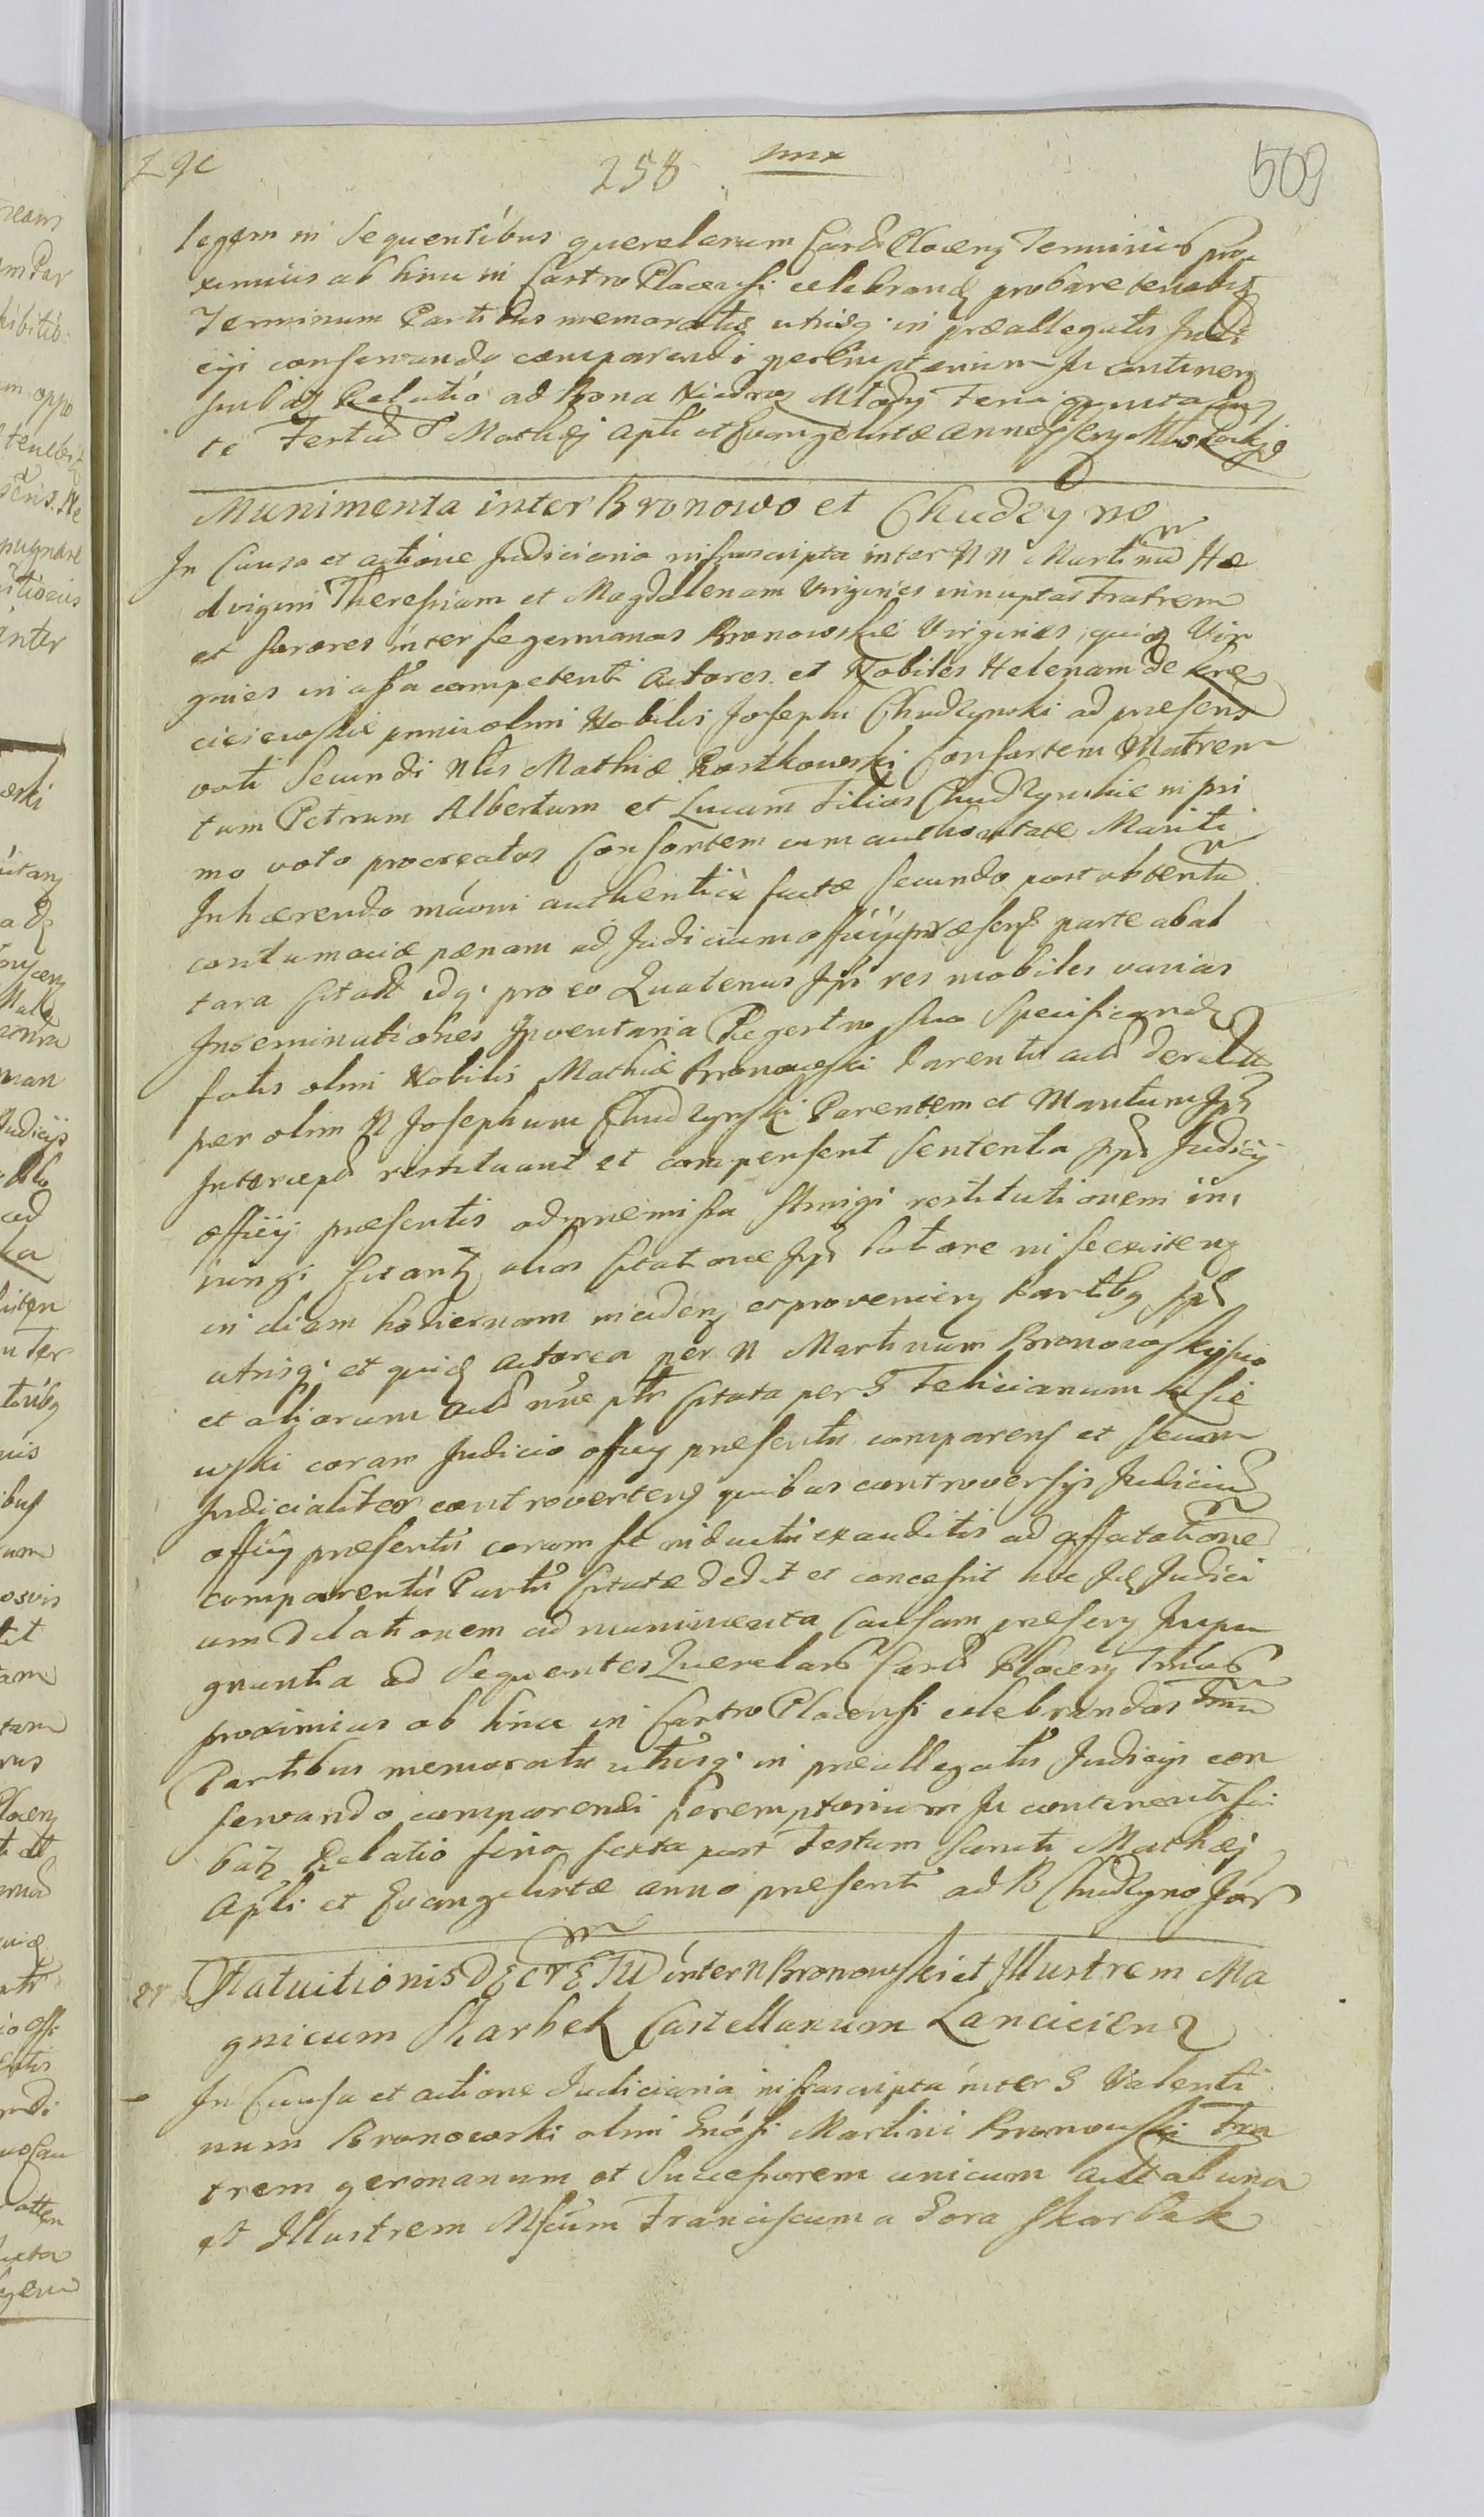 258
509
legem in Sequentibus querelarum Cast Plocen Terminis pro
ximius ab hinc in Castro Plocensi celebrand probare tenebit
Terminum Partibus memoratis utrisq in præallegatis Judi
cijs conservando comparendi peremptorium In continen
Relatio ad Bona
te Festum S Mathæj Apli et Evangelistæ anno
Munimenta inter Bronowo et Chudzyno
In Causa et actione Judiciaria infrascripta inter NN Martinum He
dvigim Theresiam et Magdalenam Virgines innuptas Fratrem
et Sorores inter se germanas Bronowskie Virgines, quid Vir
gines in assa competenti Actores et Nobiles Helenam de
primi olim Nobilis Josephi Chudzynski ad præsens
voti Secundi Nlis Mathiæ Rostkowski Consortem Matrem
tum Petrum Albertum et Lucam Filios Chudzynskie in pri
mo voto procreatos Consortem cum authoritate Mariti
Inhærendo authenticæ factæ Secundo post obtentam
contumaciæ pænam ad Judicium officij præsens parte ab ac
tara citatos idq pro eo Quatenus Ipsi res mobiles varias
Inseminationes Inventaria Regestro suo Specificand
fatis olim Nobilis Mathiæ Bronowski Parentis act derelict
per olim N Josephum Chudzynski Parentem et Maritum Ips
Intercept restituant et compensent Sententia Judicij
officij præsentis ad præmissa stringi restitutionem in
iungi citant alias Citatione Ips latiore in se
in diem hodiernam inciden ex provenien Partibq Ips
utrisq et quid Actorea per N Martinum Bronowski suo
et aliorum Act nne pltr Citata per G Felicianum
wski coram Judicio officij præsentis comparens et secum
Judicialiter controverten quibus controversijs Judicium
officij præsentis coram se inductis exauditis ad affectationem
comparentis Partis Citatæ dedit et concessit hoc Judici
um Dilationem ad munimenta Causam præsen Impu
gnantia ad Sequentes Querelar Cast Plocen Tmos
proximius ab hinc in Castro Plocensi celebrandos Tmum
Partibus memoratis utrisq in præallegatis Judicijs con
servando comparendi peremptorium In continenti
bat Relatio feria sexta post Festum Sancti Mathæj
Apli et Evangelistæ anno præsenti ad B Chudzyno
Statuitionis DECRETU inter N Bronowski et Illustrem Ma
gnificum Skarbek Castellanum Lancicien
In Causa et actione Judiciaria infrascripta inter G Valenti
num Bronowski olim Gnosi Martini Bronowski Fra
trem germanum et Successorem unicum Act ab una
et Illustrem Mficum Franciscum a Gora Skarbek